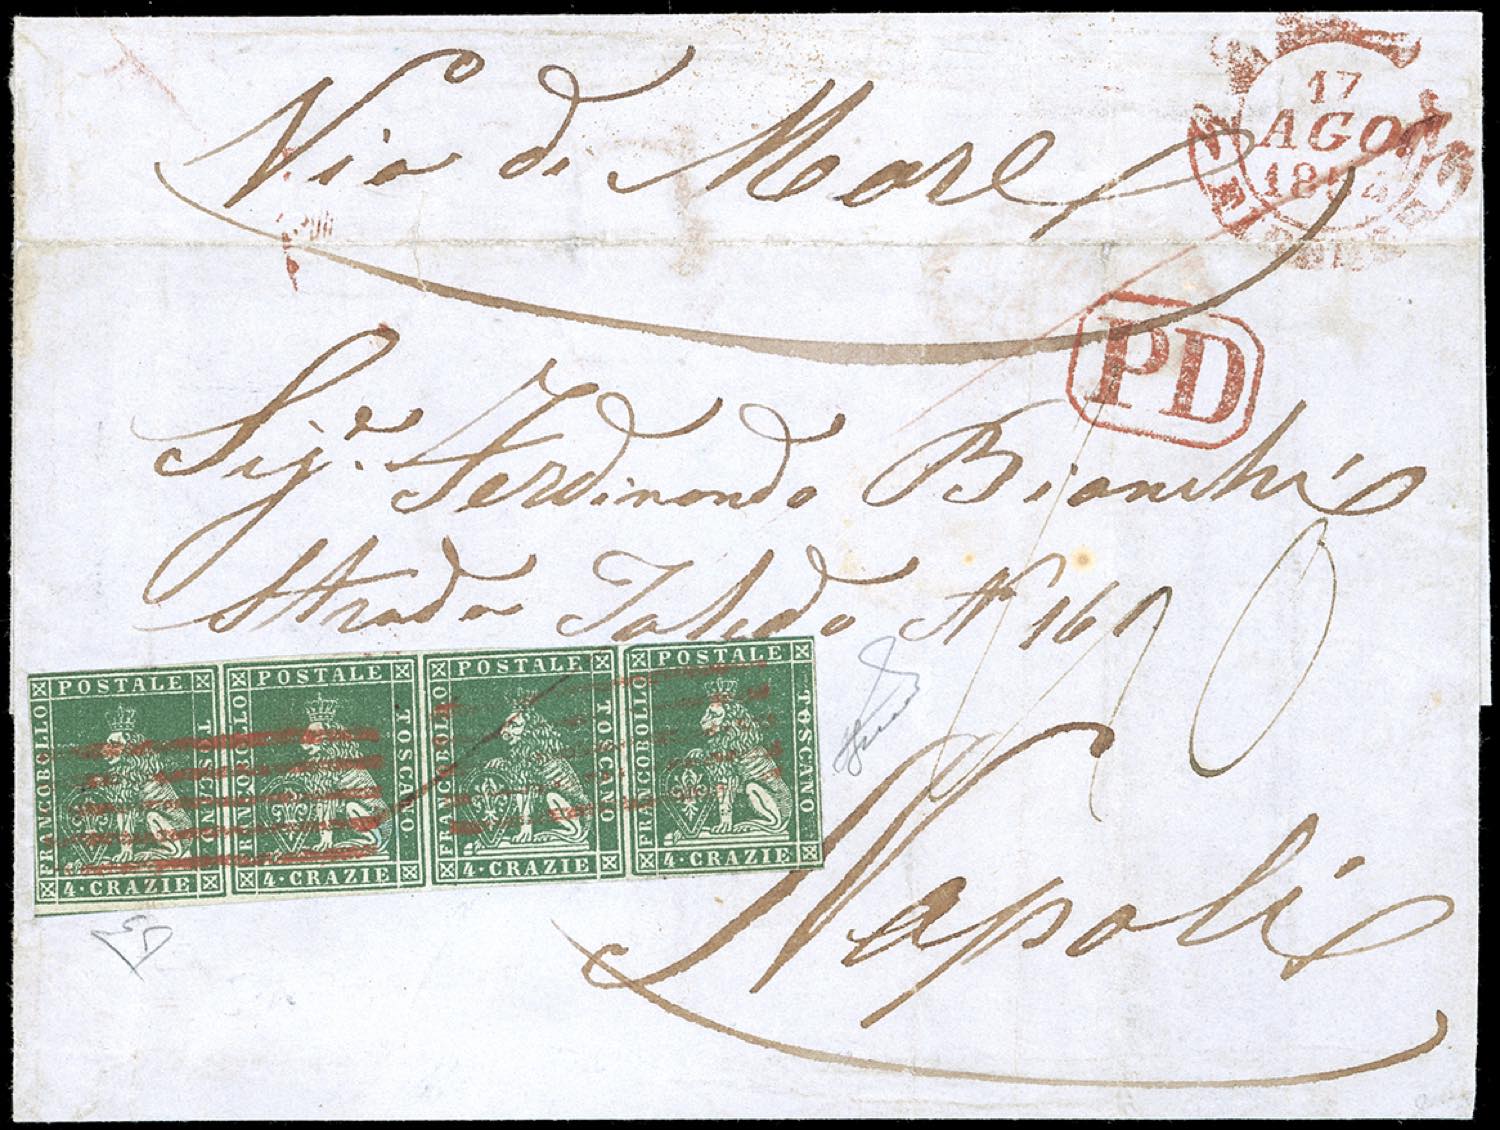 Via di Mare
17
AGO
185
PD
Sig.r Ferdinando Bianchi
Strada Toledo N° 161
POSTALE POSTALE POSTALE POSTALE
FRANCOBOLLO TOSCANO FRANCOBOLLO TOSCANO FRANCOBOLLO TOSCANO FRANCOBOLLO TOSCANO
4·CRAZIE 4·CRAZIE 4·CRAZIE 4·CRAZIE
Napoli